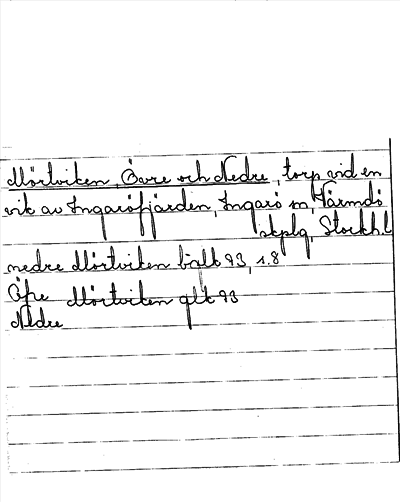 Mörtviken, Övre och Nedre, torp vid en
vik av Ingaröfjärden, Ingarö sn, Värmdö
skplg, Stockh.l
nedre Mörtviken bialk 93, s. 8
Öfre Mörtviken glk 93
Nedre